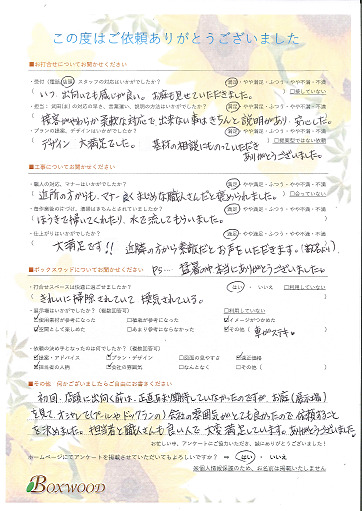 この度はご依頼ありがとうございました
■お打合せについてお聞かせください
・受付（電話・店頭）スタッフの対応はいかがでしたか？ 満足・やや満足・ふつう・やや不満・不満
いつ、出向いても感じが良い。お庭も見せていただきました。 □接していない
満足・やや満足・ふつう・やや不満・不満
接客がやわらか 素敵な対応で出来ない事はきちんと説明があり、安心した。
・プランの提案、デザインはいかがでしたか？ 満足・やや満足・ふつう・やや不満・不満
デザイン 大満足でした。 素材の相談にものっていただき
ありがとうございました。
■工事についてお聞かせください
・職人の対応、マナーはいかがでしたか？ 満足・やや満足・ふつう・やや不満・不満
近所の方からも、マナー良くまじめな職人さんだと褒められました。 □会っていない
満足・やや満足・ふつう・やや不満・不満
ほうきで掃いてくれたり、水で流してもらいました。
・仕上がりはいかがでしたか？ 満足・やや満足・ふつう・やや不満・不満
大満足です!! 近隣の方から素敵だとお声をいただきます。
■ボックスウッドについてお聞かせください PS… 猛暑の中 本当にありがとうございました。
・打合せスペースは快適に過ごせましたか？ はい ・ いいえ □利用していない
きれいに掃除されていて 換気されている。
・展示場はいかがでしたか？（複数回答可） □利用していない
☑使用素材が参考になった ☑植栽が参考になった ☑イメージがつかめた
☑空間として楽しめた □あまり参考にならなかった ☑その他（ 車がステキ
・依頼の決め手となったのは何でしたか？（複数回答可）
☑提案・アドバイス ☑プラン・デザイン □図面の見やすさ ☑適正価格
☑担当者の人柄 ☑会社の雰囲気 □なんとなく □その他（
■その他 何かございましたらご自由にお書きください
初回、店頭に出向く前は、正直あまり期待していなかったのですが、お庭（展示場）
を見て、
会社の雰囲気がとても良かったので依頼すること
を決めました。担当者も職人さんも良い人で大変満足しています。ありがとうございました。
お忙しい中、アンケートにご協力いただき、誠にありがとうございました！
ホームページにてアンケートを掲載させていただいてもよろしいですか？ ⇒ はい ・ いいえ
※個人情報保護のため、お名前は掲載いたしません
BOXWOOD